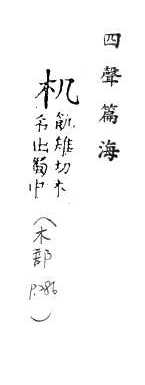 四聲篇海
机
飢雉切木
名出蜀中
(木部 P.286)